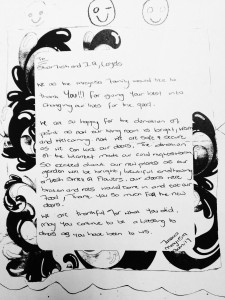 To
Dear Josh and I.Q, Loyds
We as the maqetsa Family would like to
thank You!!! for giving Your best into
changing our lives for the good.
We are so happy for the donation of
paint as now our living room is bright, warm
and welcoming. Not we are safe & secure
as we can lock our doors, The donation
of the blanket meets our kind regulations.
So excited about our new plants as our
garden will be bright, beautiful and having
a fresh smell of Flowers. Our doors were
broken and rats would come in and eat our
food, Thank You so much for the new
doors.
We are thankful for what You did,
May You continue to be a blessing to
others as you have been to us.